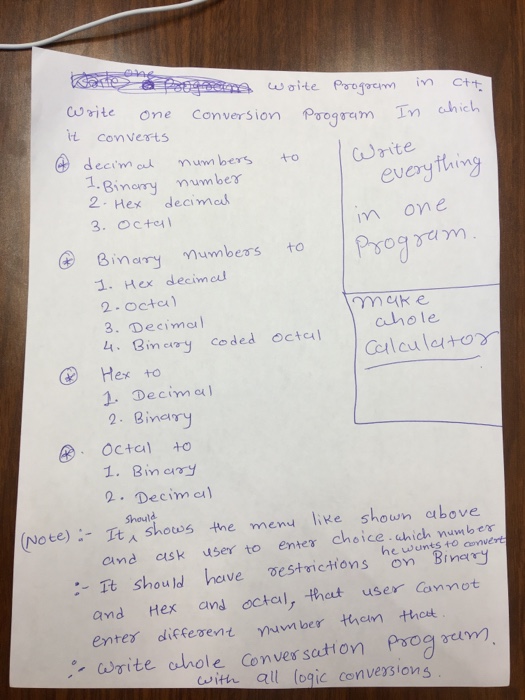 Write one Program Write Program in C++.
Write one Conversion Program In which
it converts
* decimal numbers to
1. Binary number
2. Hex decimal
3. Octal
* Binary numbers to
1. Hex decimal
2. Octal
3. Decimal
4. Binary coded octal
* Hex to
1. Decimal
2. Binary
* Octal to
1. Binary
2. Decimal
Write
everything
in one
Program.
make
whole
Calculator
(Note) :- It should shows the menu like shown above
and ask user to enter choice. which number
he wants to convert
:- It should have restrictions on Binary
and Hex and octal, that user cannot
enter different number than that.
:- Write whole Conversation Program.
with all logic conversions.